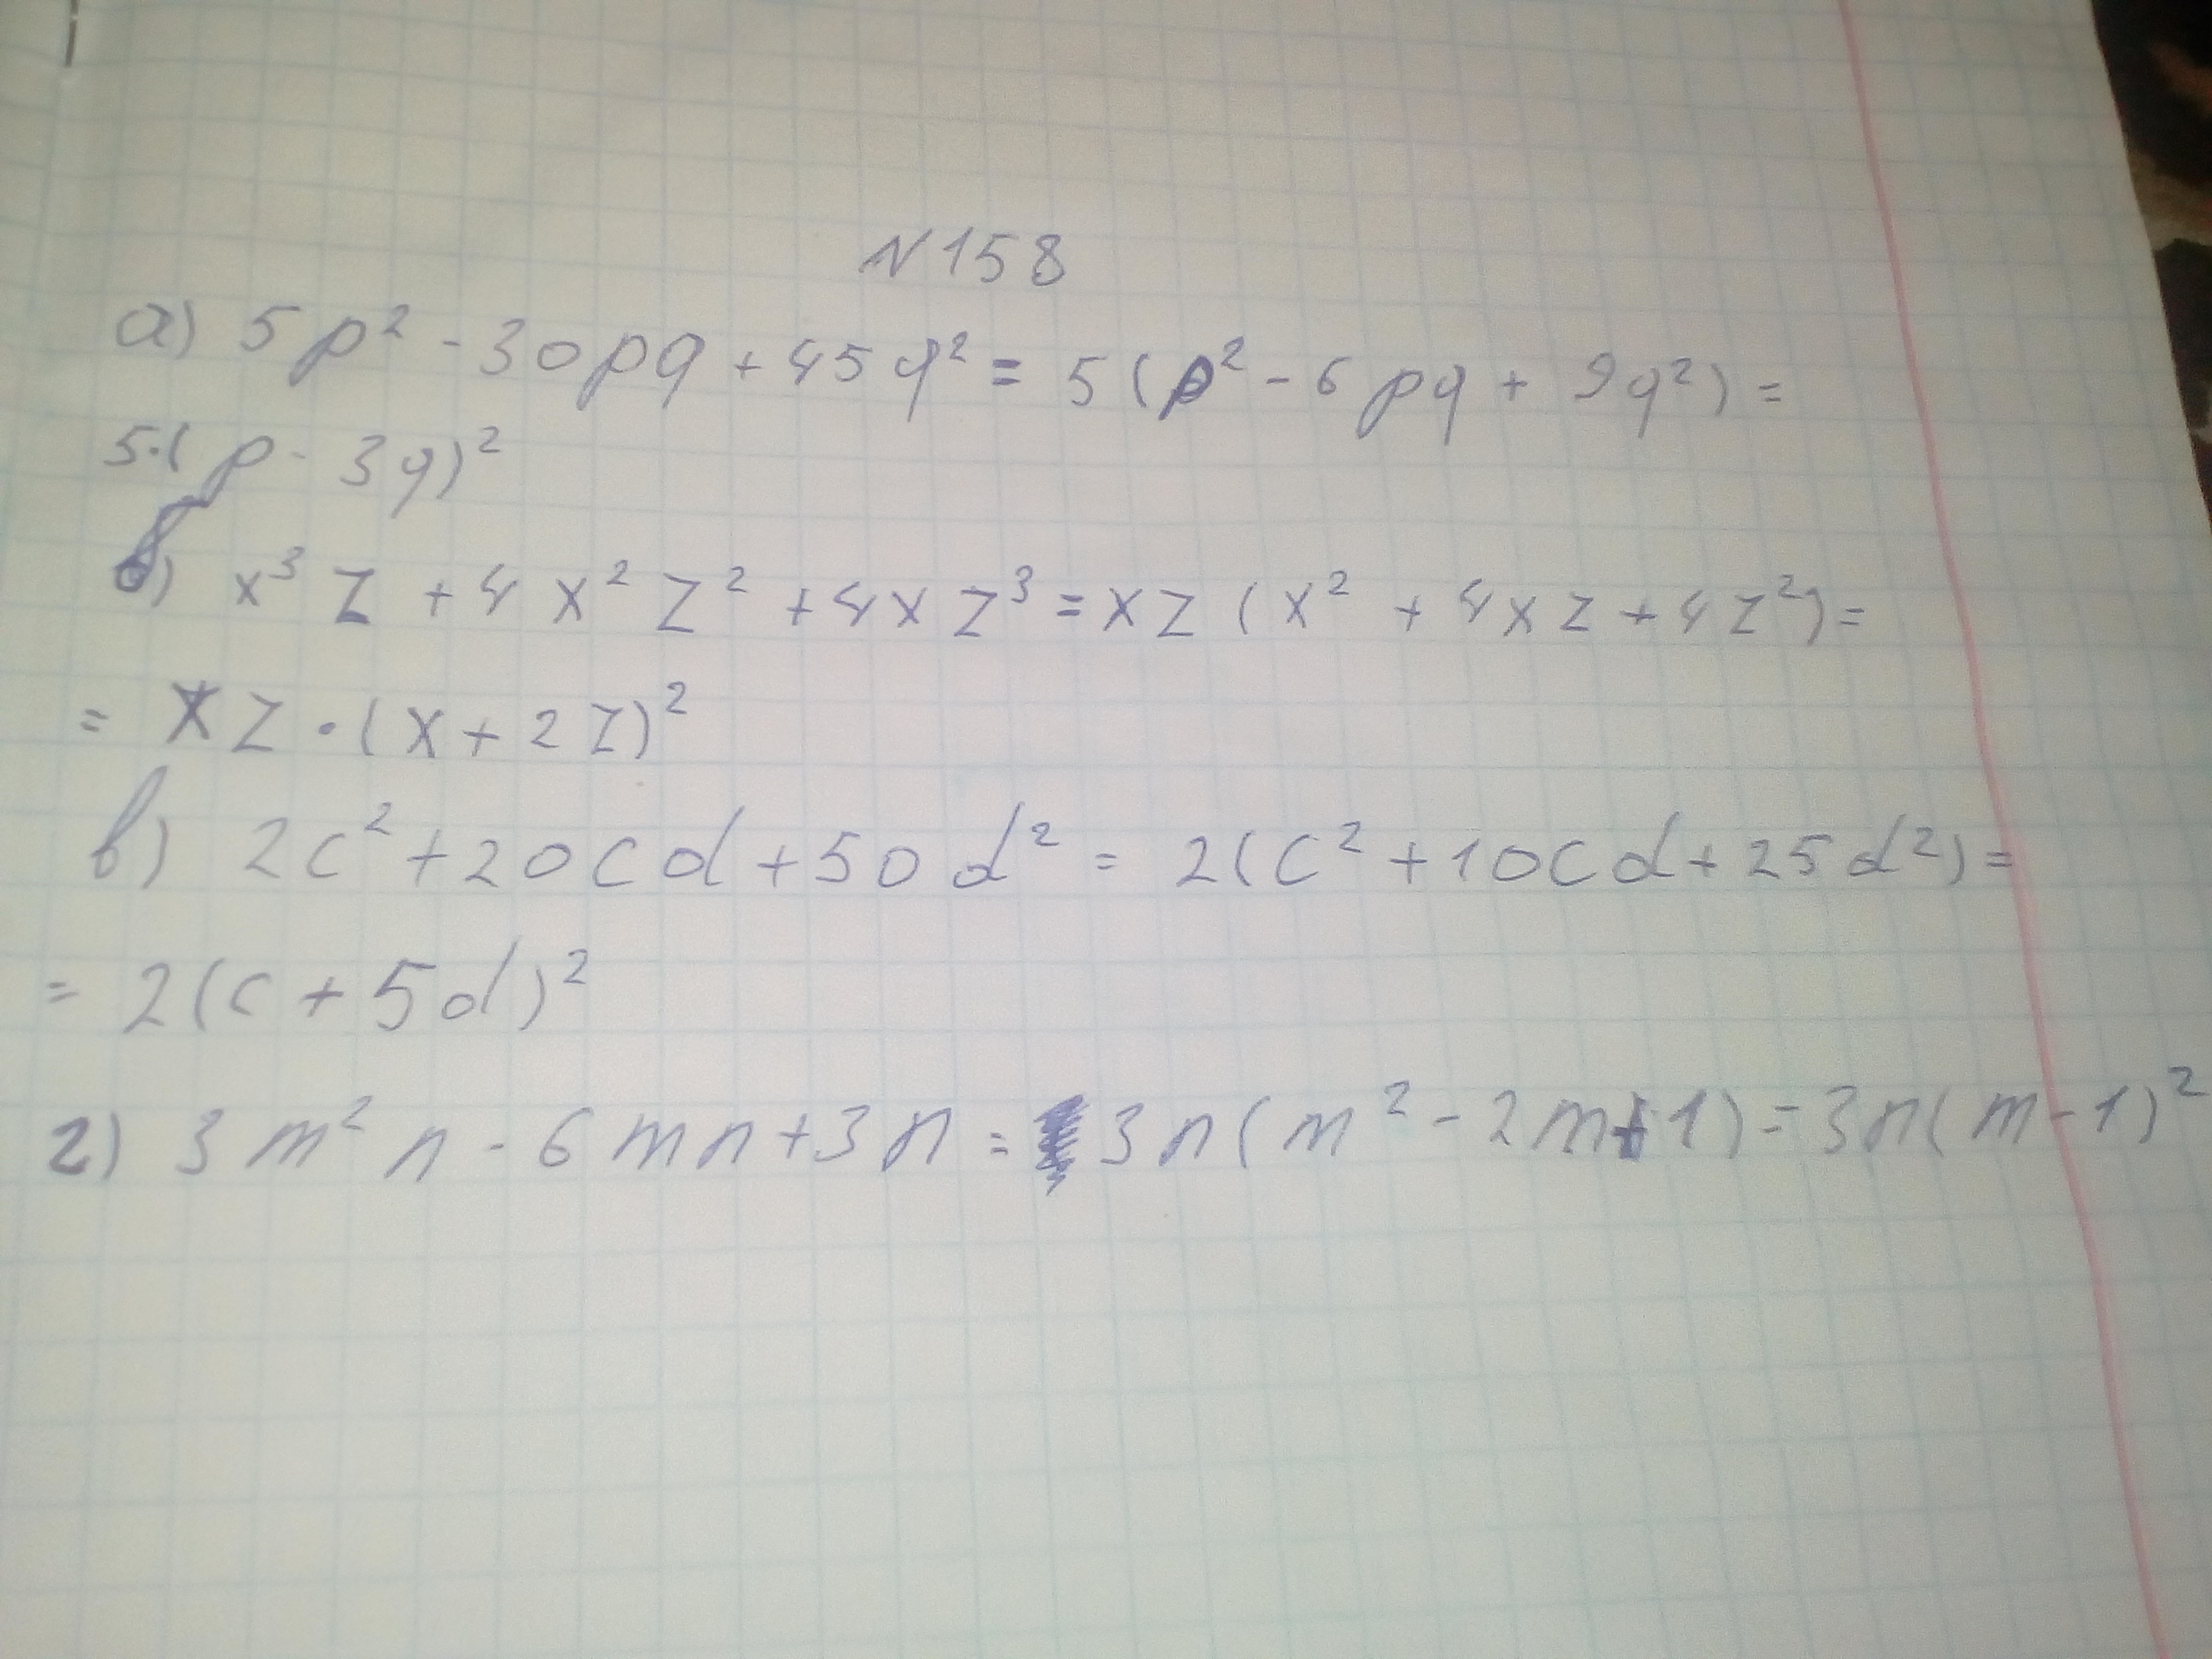 N158
а) 5p² - 30pq + 45q² = 5(p² - 6pq + 9q²) =
5·(p - 3q)²
б) x³z + 4x²z² + 4xz³ = xz(x² + 4xz + 4z²) =
= xz·(x + 2z)²
в) 2c² + 20cd + 50d² = 2(c² + 10cd + 25d²) =
= 2(c + 5d)²
г) 3m²n - 6mn + 3n = 3n(m² - 2m + 1) = 3n(m - 1)²